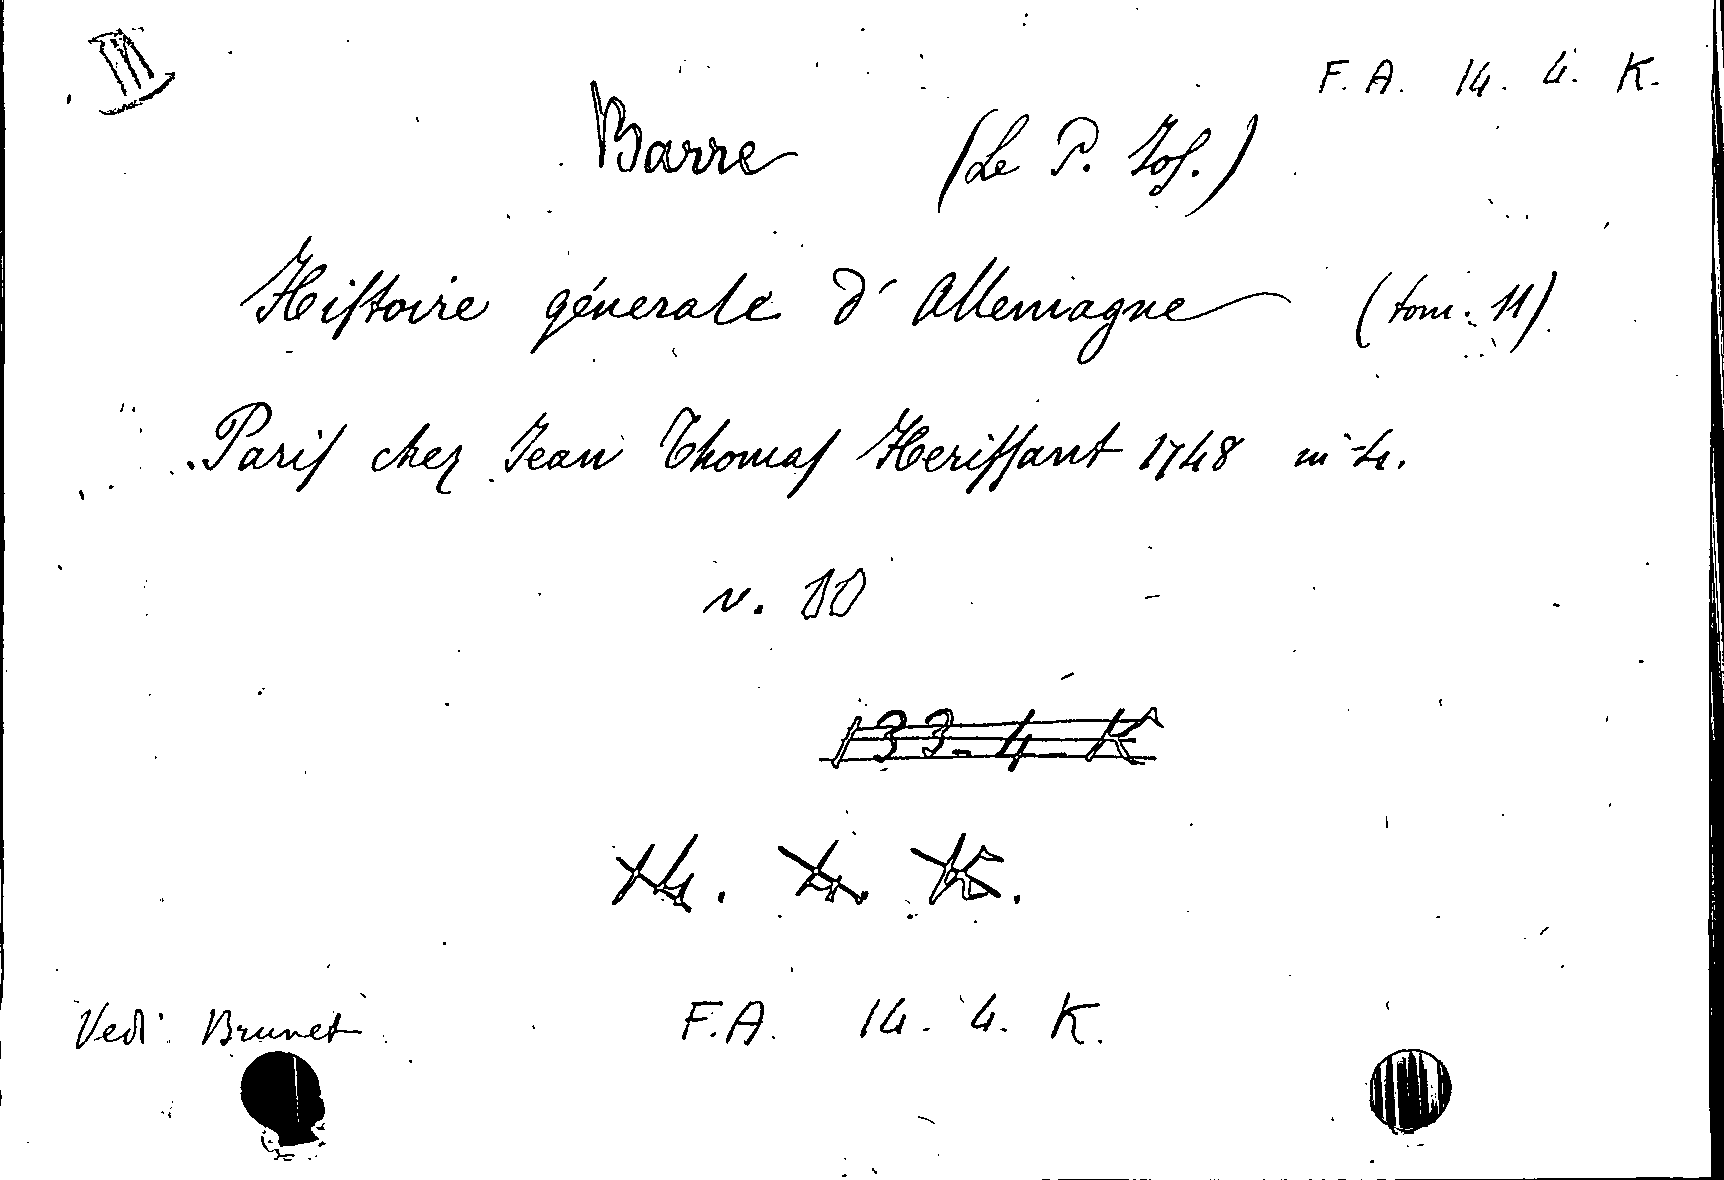 III
F. A. 14. 4. K.
Barre (Le P. Jos.)
Hiſtoire génerale d'Allemagne (tom. 11)
Pariſ chez Jean Thomaſ Heriſſant 1748 in-4.
v. 10
133-4-K
14. 4. K.
Vedi Brunet F.A. 14. 4. K.